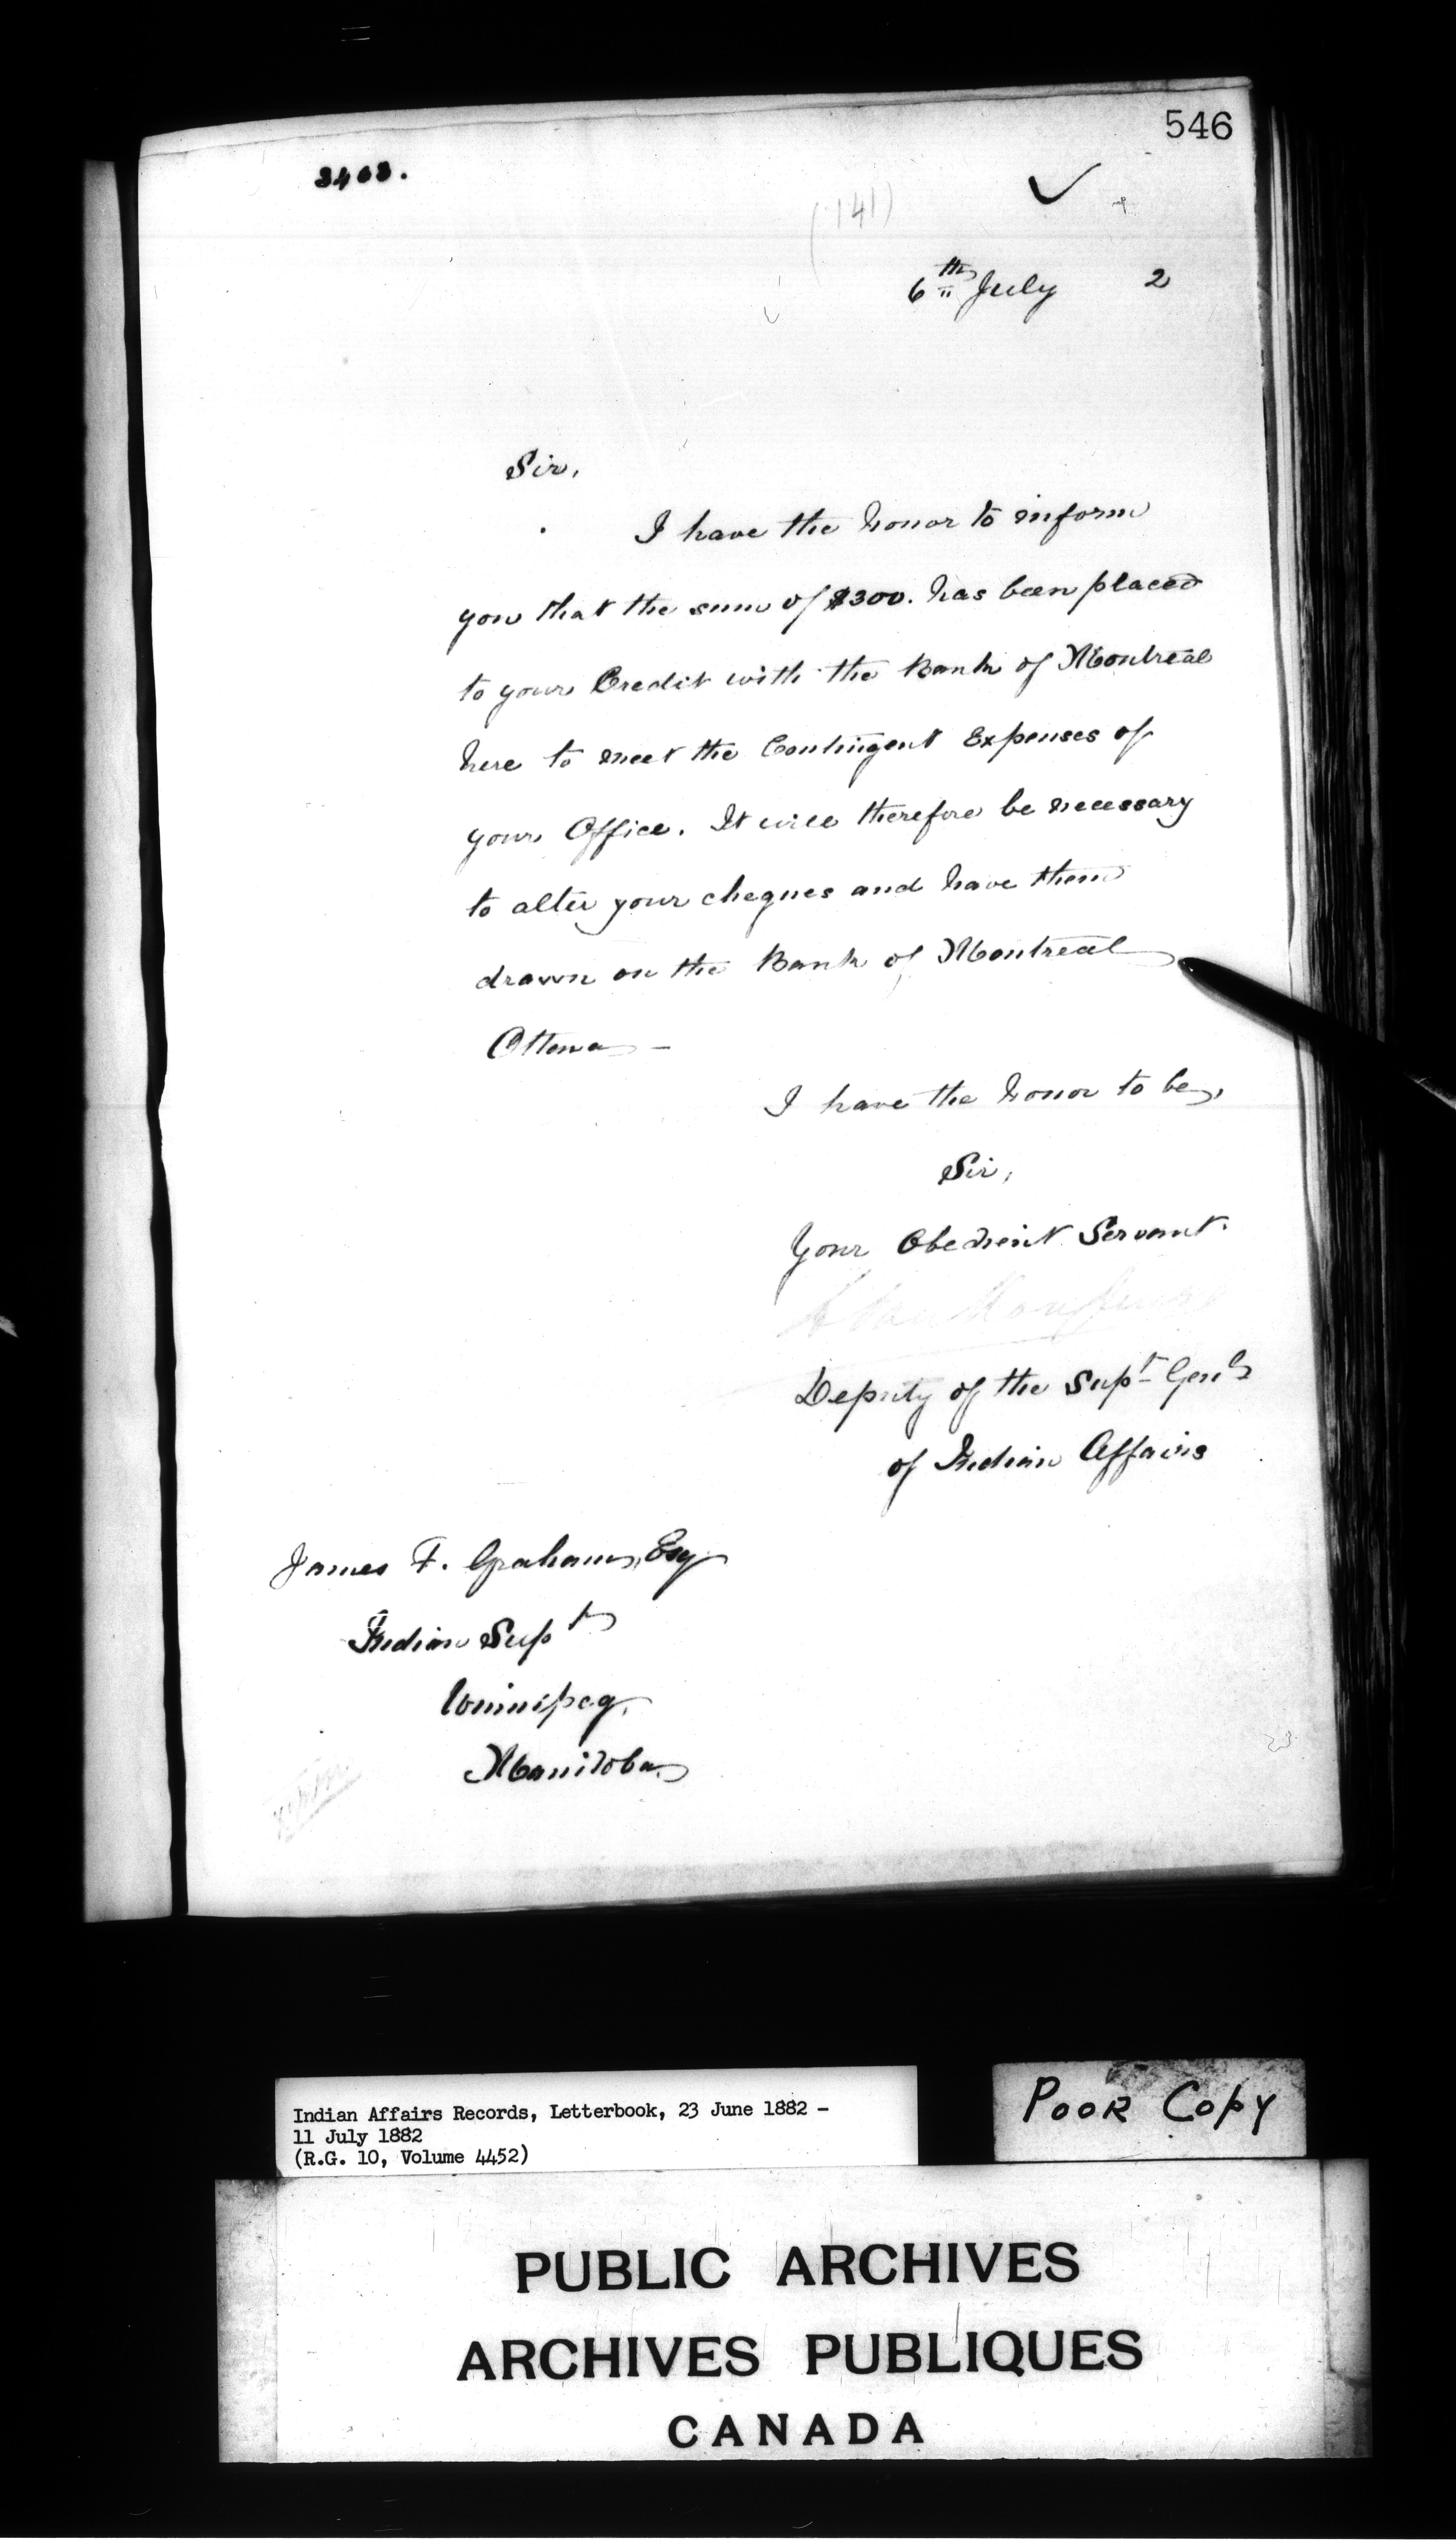 546
3403.
(141)
6th July 2
Sir,
I have the honor to inform
you that the sum of $300. has been placed
to your Credit with the Bank of Montreal
here to meet the Contingent Expenses of
your Office. It will therefore be necessary
to alter your cheques and have them
drawn on the Bank of Montreal
Ottawa —
I have the honor to be,
Sir,
Your Obedient Servant.
Deputy of the Supt Genl
of Indian Affairs
James F. Graham, Esq
Indian Supt
Winnipeg,
Manitoba
Indian Affairs Records, Letterbook, 23 June 1882 -
11 July 1882
(R.G. 10, Volume 4452)
POOR COPY
PUBLIC ARCHIVES
ARCHIVES PUBLIQUES
CANADA